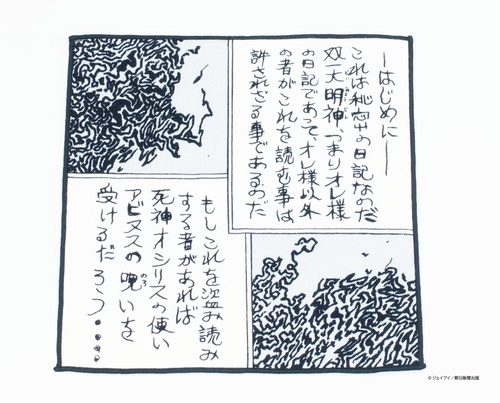 ―はじめに―
これは秘密の日記なのだ
双一大明神、つまりオレ様
の日記であって、オレ様以外
の者がこれを読む事は
許されざる事であるのだ
もしこれを盗み読み
する者があれば
死神オシリスの使い
アビヌスの呪いを
のろ
受けるだろう・・・・・
©ジェイアイ/朝日新聞出版